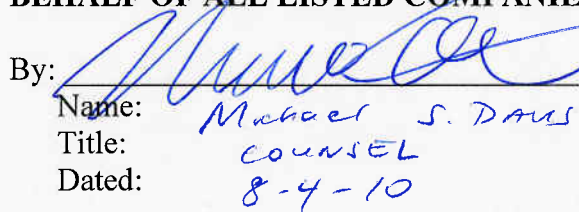 BEHALF OF ALL LISTED COMPANIE
By:
Name: Michael S. DAVIS
Title: COUNSEL
Dated: 8-4-10